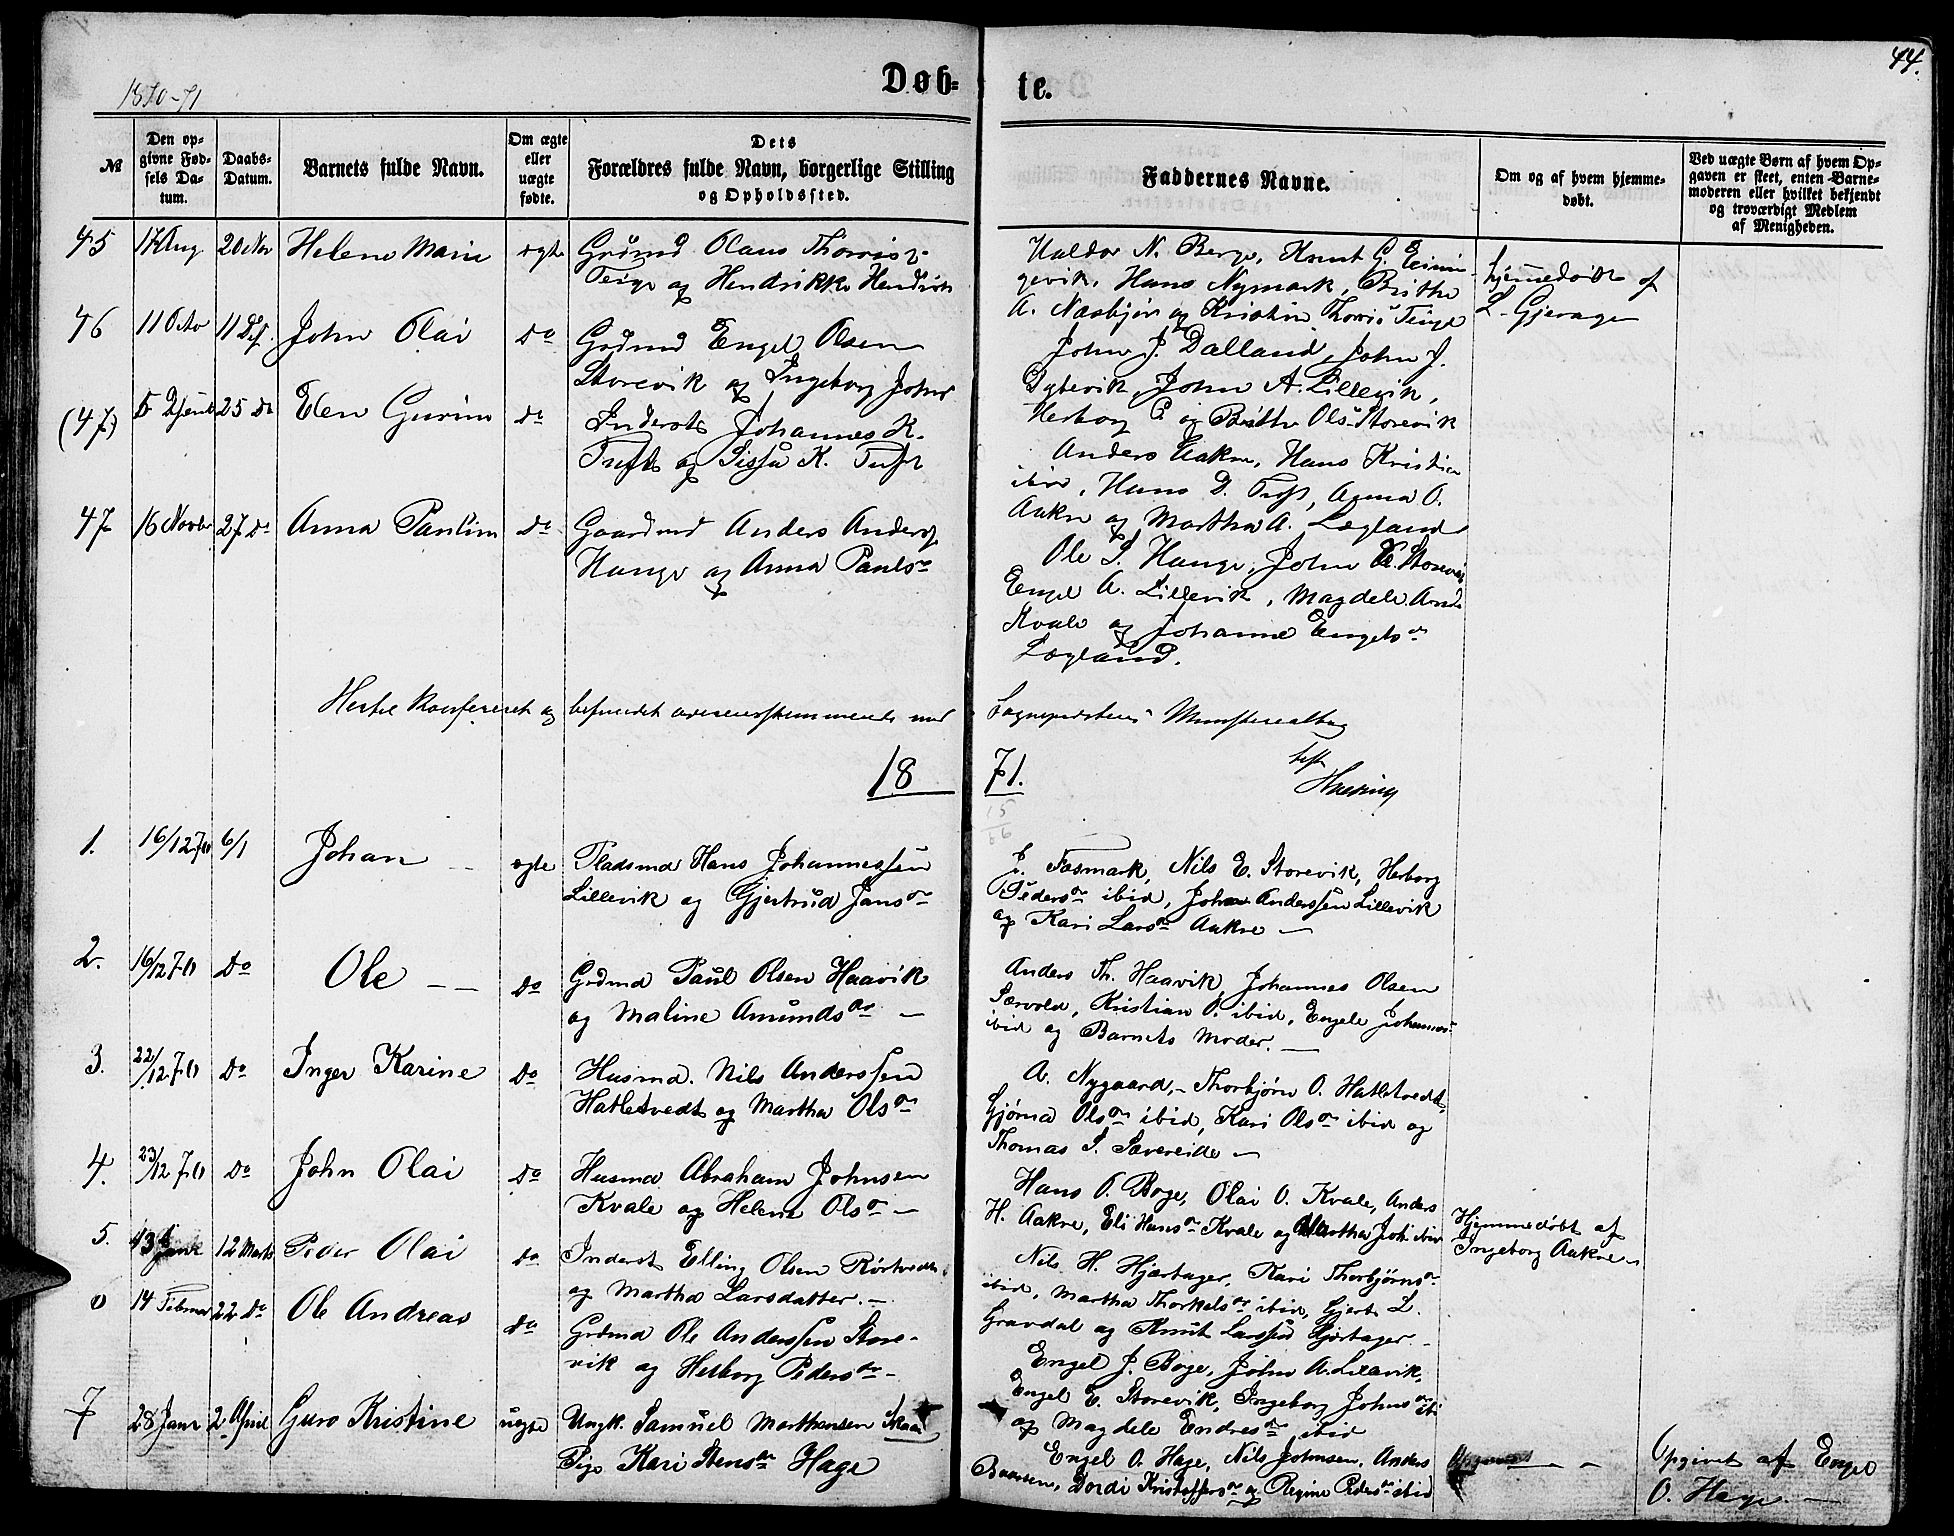 44.
1870-71
Døb-te.
№
Den opgivne Fødsels Datum.
Daabs-Datum.
Barnets fulde Navn.
Om ægte eller uægte fødte.
Dets Forældres fulde Navn, borgerlige Stilling og Opholdssted.
Faddernes Navne.
Om og af hvem hjemmedøbt.
Ved uægte Børn af hvem Opgaven er skeet, enten Barnemoderen eller hvilket bekjendt og troværdigt Medlem af Menigheden.
45 17 Aug 20 Nov Helene Marie ægte Grdmd Olaus Thorris
Teige og Hendrikke Hendriks
Haldor N. Berge, Knut G. Einin-
gevik, Hans Nymark, Brithe
A. Næsbjørn og Kristine Thorris Teige
hjemmedøbt af
L. Gjerager
46 11 Octor 11 Des. John Olai do Grdmd Engel Olsen
Storevik og Ingeborg Johns
John J. Dalland, John J.
Ytevik, John A. Lillevik,
Herborg E og Brithe Ols Storevik
(47) 25 do Elen Gurine do Inderst Johannes K.
Tuft og Sissa K. Tuft
Anders Aakre, Hans Kristian
ibid, Hans D. Tuft, Anna O.
Aakre og Martha A. Lægland
47 16 Novbr 27 do Anna Pauline do Gaardmd Anders Anders
Hauge og Anna Pauls
Ole S. Hauge, John E. Storevik
Engel A. Lillevik, Magdele And
Kvale og Johanne Engels
Lægland.
Hertil konfereret og befundet overensstemmende med Sognepræstens Ministerialbog
1871.
1. 16/12 70 6/1 Johan ægte Pladsmd Hans Johannessen
Lillevik og Gjertrud Jans
J. Fosmark, Nils E. Storevik, Herborg
Peders ibid, Johan Anderssen Lillevik
og Kari Lars Aakre
2. 16/12 70 Do Ole do Grdmd Paul Olsen Haavik
og Maline Amunds
Anders Th. Haavik, Johannes Olsen
Særvold, Kristian O. ibid, Engele Johannes
ibid og Barnets Moder.
3. 22/12 70 Do Inger Karine do Husmd. Nils Anderssen
Hatletvedt og Martha Ols
A. Nygaard, Thorbjørn O. Hatletvedt,
Gjøna Ols ibid, Kari Ols ibid og
Thomas S. Sævereide
4. 23/12 70 Do John Olai do Husmd Abraham Johnsen
Kvale og Helena Ols
Hans O. Boge, Olai O. Kvale, Anders
H. Aakre, Eli Hans Kvale og Martha Joh. ibid
Hjemmedøbt af
Ingeborg Aakre
5. 13 Janr 12 Marts Peder Olai do Inderst Elling Olsen Rørtvedt
og Martha Larsdatter.
Nils H. Hjærtager, Kari Thorbjørns
ibid, Martha Thorkels ibid, Gjert L.
Gravdal og Knut Larssen Hjærtager
14 Februar 22 do Ole Andreas do Grdmd Ole Anderssen Store-
vik og Herborg Peders
Engel J. Boge, John A. Lillevik,
Engel E. Storevik, Ingeborg Johns ibi
og Magdele Endres ibid
7 28 Janr 2 April Guro Kristine uægte Ungk. Samuel Marthensen
Pige Kari Stens Hage
Engel O. Hage, Nils Johnsen, Anders
Baarsen, Dordi Kristoffers og Regine Peders ibid
Opgivet af Engel
O. Hage.